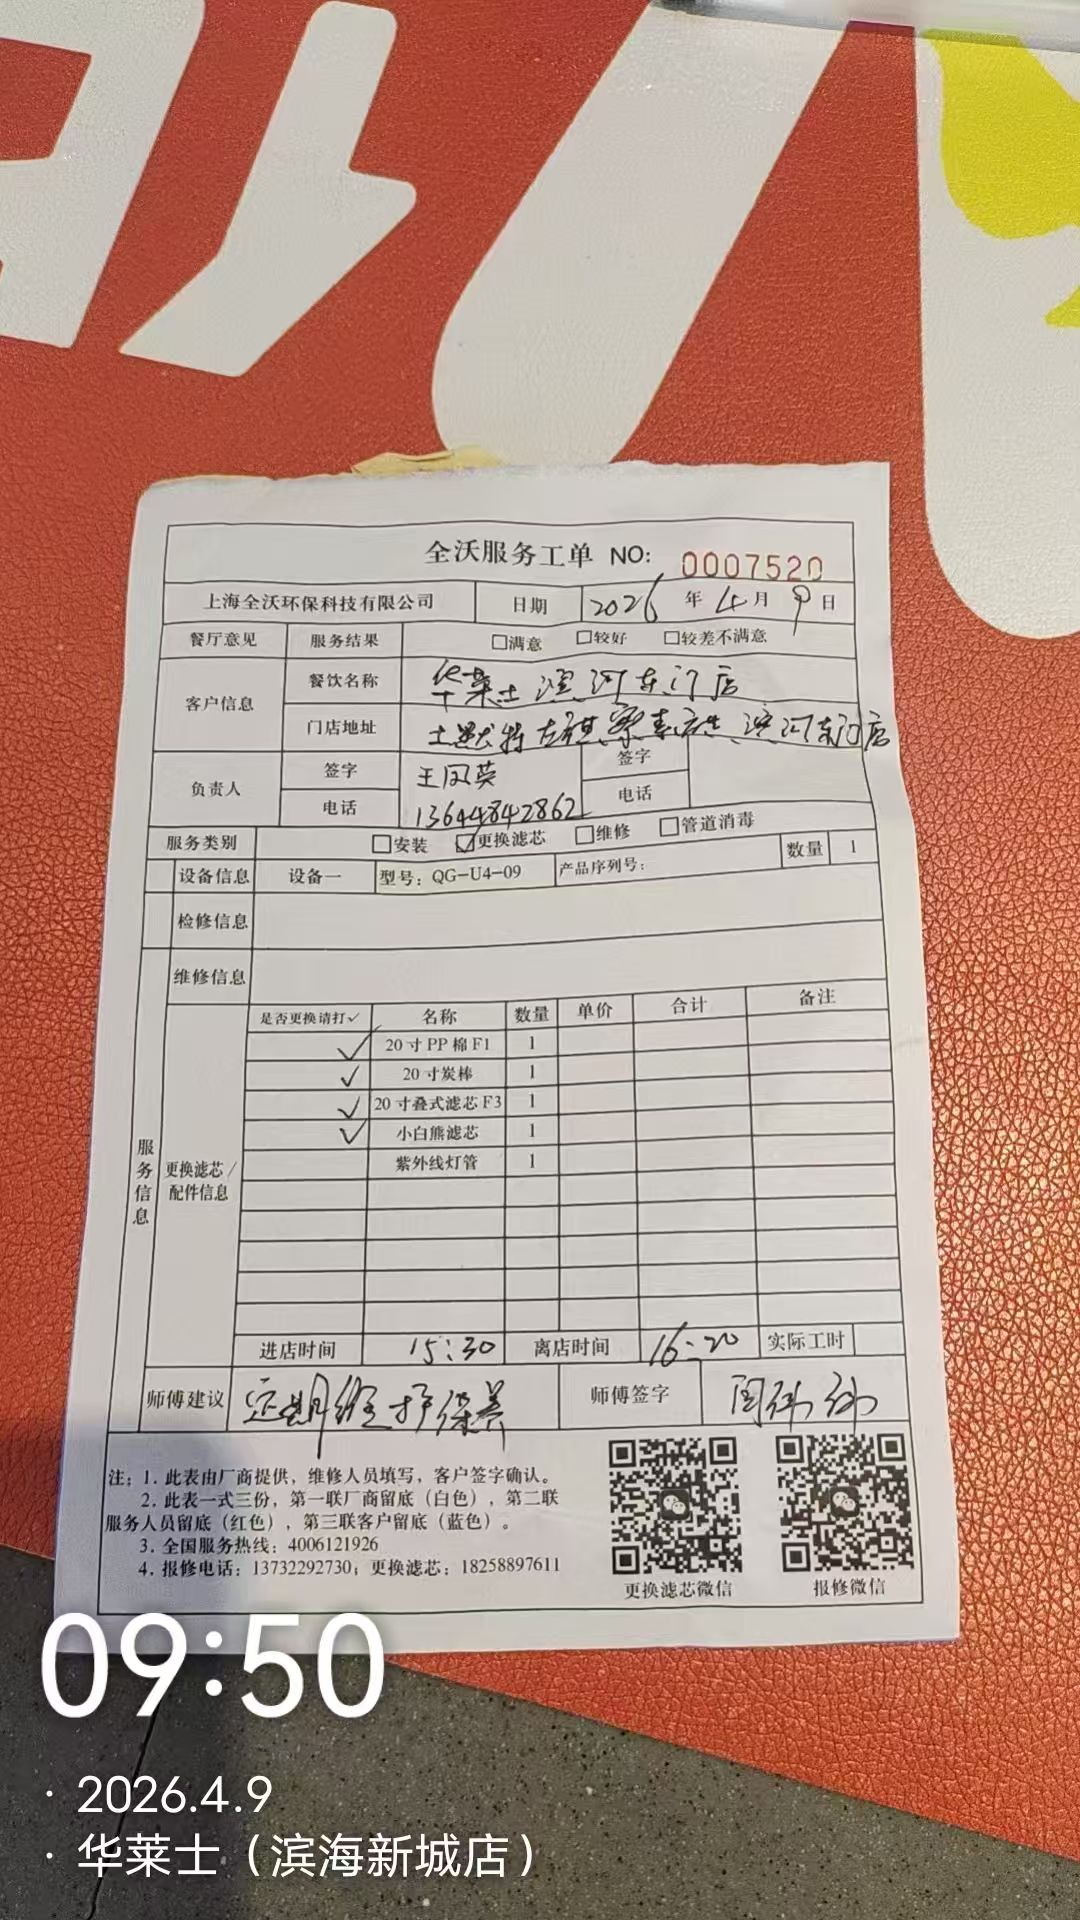 全沃服务工单 NO: 0007520
上海全沃环保科技有限公司 日期 2026年4月9日
餐厅意见 服务结果 □满意 □较好 □较差不满意
客户信息 餐饮名称 华莱士滨河东门店
门店地址 土默特左旗察素齐 滨河东门店
负责人 签字 王凤英 签字
电话 13644842862 电话
服务类别 □安装 ☑更换滤芯 □维修 □管道消毒
设备信息 设备一 型号：QG-U4-09 产品序列号： 数量 1
检修信息
维修信息
服务信息 更换滤芯/配件信息
是否更换请打✓ 名称 数量 单价 合计 备注
✓ 20寸PP棉F1 1
✓ 20寸炭棒 1
✓ 20寸叠式滤芯F3 1
✓ 小白熊滤芯 1
紫外线灯管 1
进店时间 15:30 离店时间 16:20 实际工时
师傅建议 定期维护保养 师傅签字
注：1. 此表由厂商提供，维修人员填写，客户签字确认。
2. 此表一式三份，第一联厂商留底（白色），第二联
服务人员留底（红色），第三联客户留底（蓝色）。
3. 全国服务热线：4006121926
4. 报修电话：13732292730；更换滤芯：18258897611
更换滤芯微信 报修微信
09:50
· 2026.4.9
· 华莱士（滨海新城店）